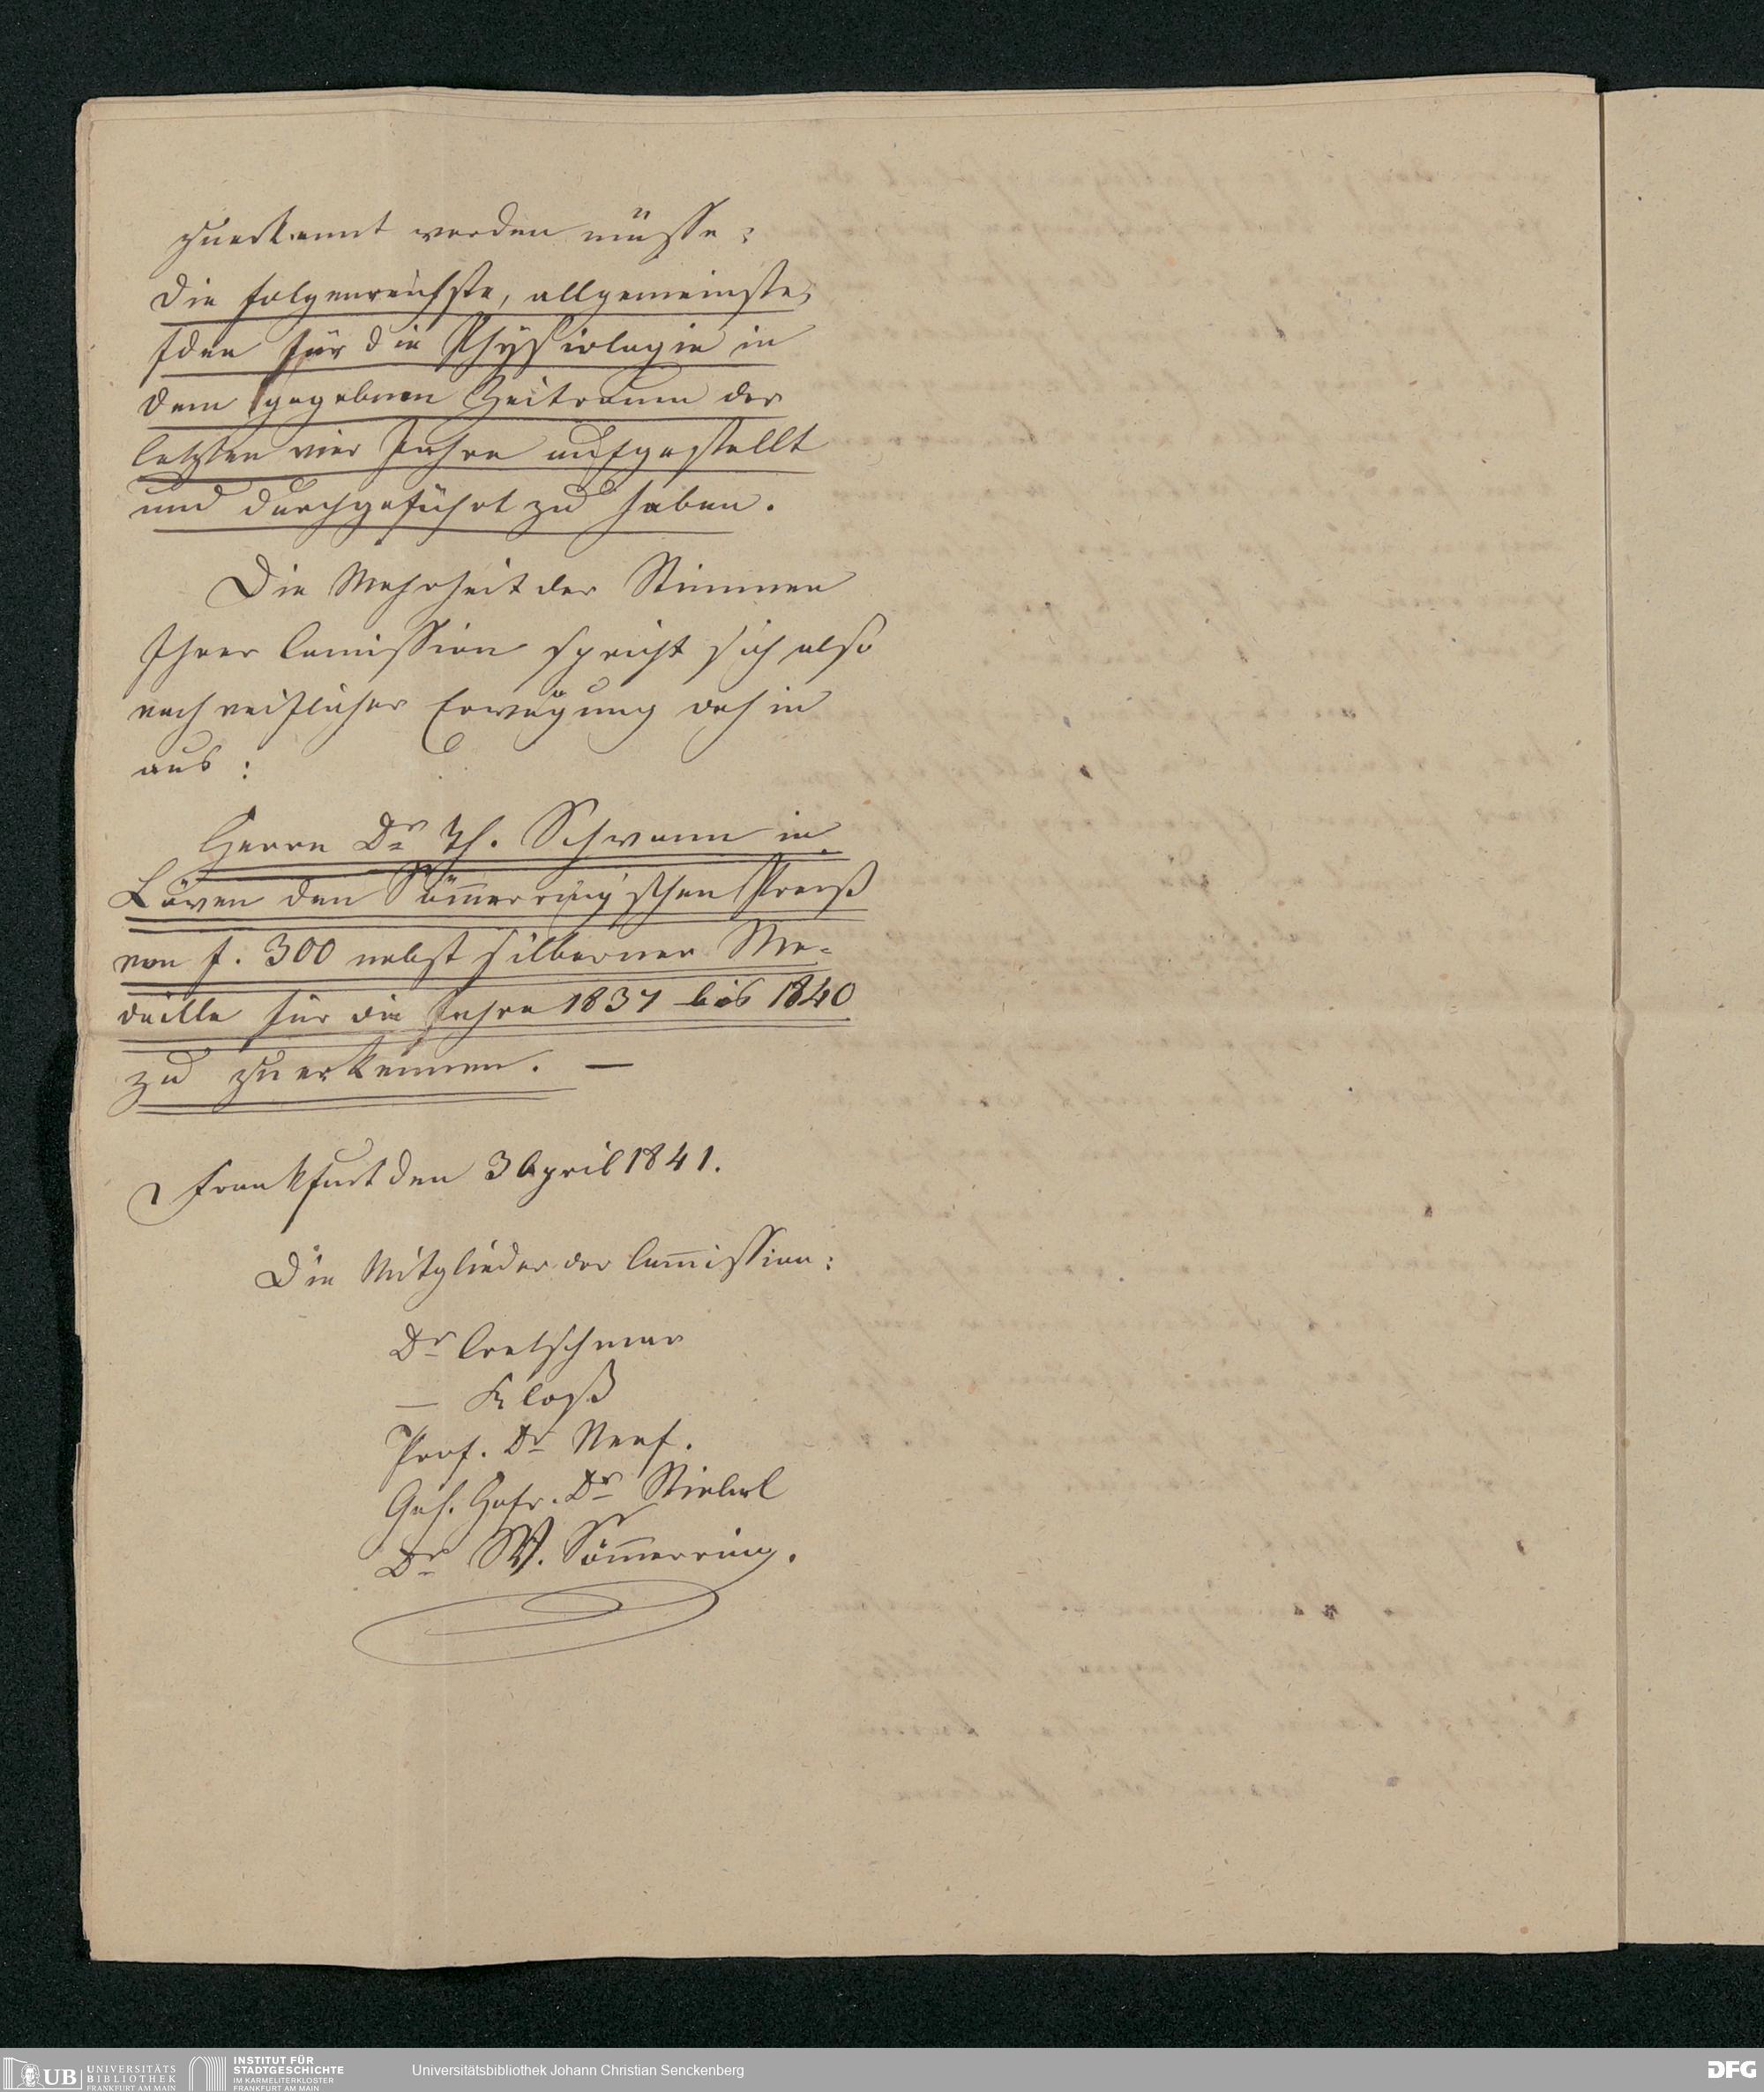 zuerkannt werden müsse:
die folgenreichste, allgemeinste,
Idee für die Physiologie in
dem gegebnen Zeitraum der
letzten vier Jahre aufgestellt
und durchgeführt zu haben.
Die Mehrheit der Stimmen
Ihrer Comission spricht sich also
nach reiflicher Erwägung dahin
aus:
Herrn Dr Th. Schwann in
Löven den Sömmerring'schen Preiß
von f. 300 nebst silberner Me-
daille für die Jahre 1837 bis 1840
zu zuerkennen. —
Frankfurt den 3 April 1841.
Die Mitglieder der Commission:
Dr Cretschmar
— Kloß
Prof. Dr Neef.
Geh. Hofr. Dr Stiebel
Dr W. Sömmerring.
UB UNIVERSITÄTS
BIBLIOTHEK
FRANKFURT AM MAIN
INSTITUT FÜR
STADTGESCHICHTE
IM KARMELITERKLOSTER
FRANKFURT AM MAIN
Universitätsbibliothek Johann Christian Senckenberg
DFG